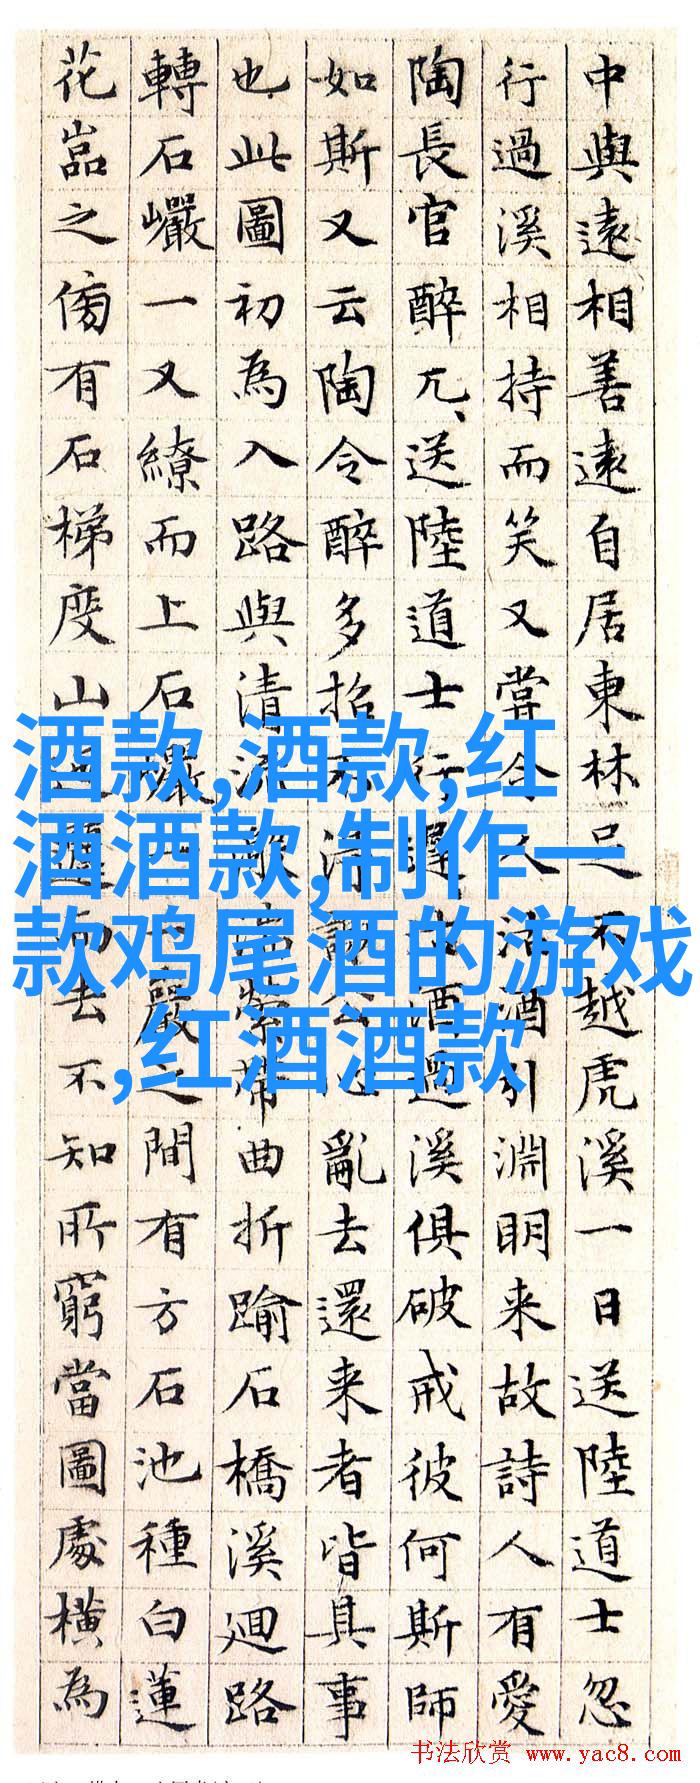 中與遠相善遠自居東林足不越虎溪一日送陸道士忽
行過溪相持而笑又嘗令人沽酒引淵明来故詩人有愛
陶長官醉兀、送陸道士行遲、酒過溪俱破戒彼何斯師
如斯又云陶令醉多招不得謝公心亂去還来者皆具事
也此圖初為入路與清流縈帶曲折踰石橋溪廻路
轉石巖一又繚而上石巖巖之間有方石池種白蓮
花嵓之傍有石梯度山而去不知所窮當圖處橫為
酒款,酒款,红
酒酒款,制作一
款鸡尾酒的游戏
,红酒酒款
书法欣赏 www.yac8.com